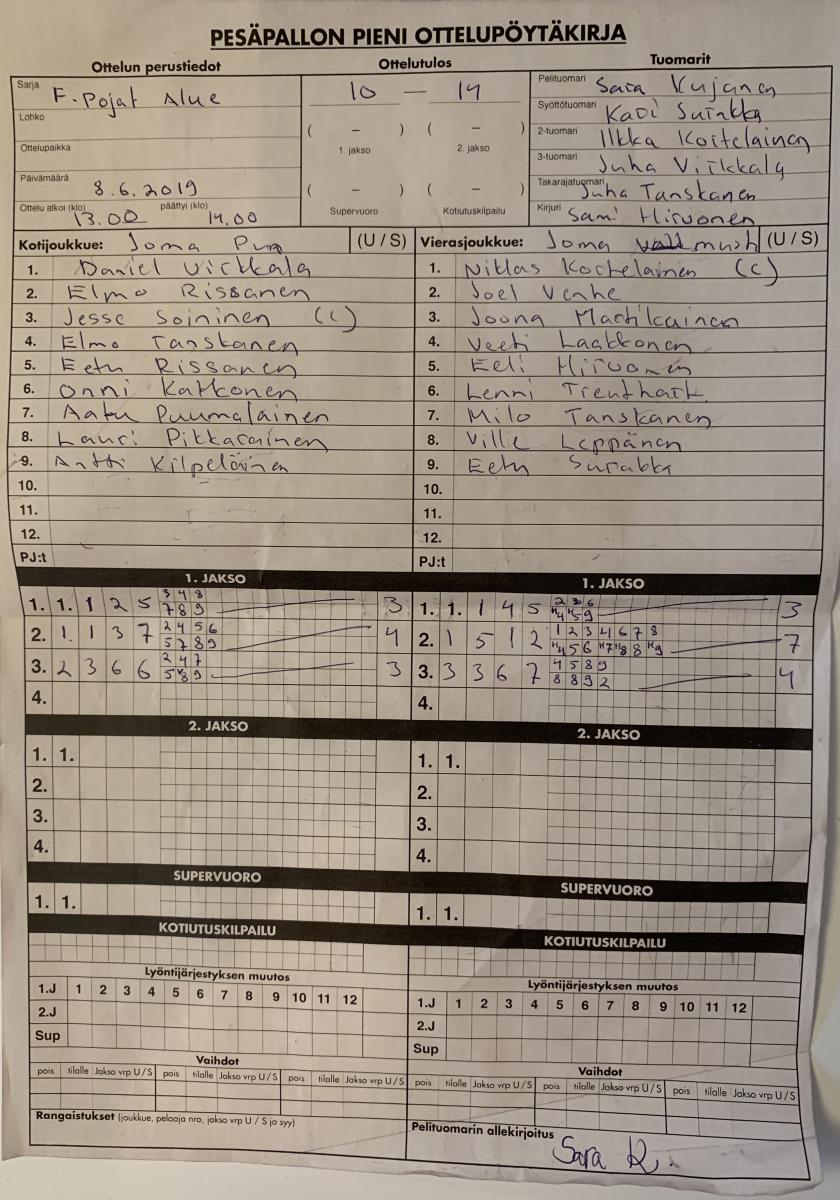 PESÄPALLON PIENI OTTELUPÖYTÄKIRJA
Ottelun perustiedot
Sarja F-Pojat Alue
Lohko
Ottelupaikka
Päivämäärä 8.6.2019
Ottelu alkoi (klo) 13.00 päättyi (klo) 14.00
Ottelutulos
10 — 14
( – ) ( – )
1. jakso 2. jakso
( – ) ( – )
Supervuoro Kotiutuskilpailu
Tuomarit
Pelituomari Sara Kujanen
Syöttötuomari Kari Surakka
2-tuomari Ilkka Koitelainen
3-tuomari Juha Virkkala
Takarajatuomari Juha Tanskanen
Kirjuri Sami Hirvonen
Kotijoukkue: Joma Pun (U / S)
1. Daniel Virkkala
2. Elmo Rissanen
3. Jesse Soininen (C)
4. Elmo Tanskanen
5. Eetu Rissanen
6. Onni Kakkonen
7. Aatu Puumalainen
8. Lauri Pikkarainen
9. Antti Kilpeläinen
10.
11.
12.
PJ:t
Vierasjoukkue: Joma must (U / S)
1. Niklas Koitelainen (C)
2. Joel Venhe
3. Joona Martikainen
4. Veeti Laakkonen
5. Eeli Hirvonen
6. Lenni
7. Milo Tanskanen
8. Ville Leppänen
9. Eetu Surakka
10.
11.
12.
PJ:t
1. JAKSO
1. 1. 1 2 5 3 4 8 7 8 9 3
2. 1 1 3 7 2 4 5 6 5 7 8 9 4
3. 2 3 6 6 2 4 7 3
4.
2. JAKSO
1. 1.
2.
3.
4.
SUPERVUORO
1. 1.
KOTIUTUSKILPAILU
Lyöntijärjestyksen muutos
1.J 1 2 3 4 5 6 7 8 9 10 11 12
2.J
Sup
Vaihdot
pois tilalle Jakso vrp U / S pois tilalle Jakso vrp U / S pois tilalle Jakso vrp U / S
Rangaistukset (joukkue, pelaaja nro, jakso vrp U / S ja syy)
1. JAKSO
1. 1. 1 4 5 2 3 6 3
2. 1 5 1 2 1 2 3 4 6 7 8 7
3. 3 3 6 7 4 5 8 9 8 8 9 2 4
4.
2. JAKSO
1. 1.
2.
3.
4.
SUPERVUORO
1. 1.
KOTIUTUSKILPAILU
Lyöntijärjestyksen muutos
1.J 1 2 3 4 5 6 7 8 9 10 11 12
2.J
Sup
Vaihdot
pois tilalle Jakso vrp U / S pois tilalle Jakso vrp U / S pois tilalle Jakso vrp U / S
Pelituomarin allekirjoitus
Sara K.